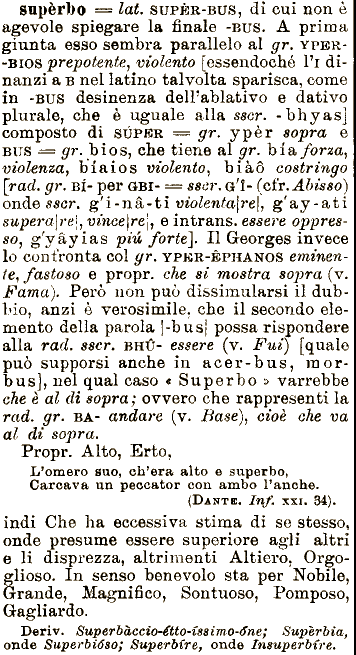 supèrbo = lat. SUPÈR-BUS, di cui non è
agevole spiegare la finale -BUS. A prima
giunta esso sembra parallelo al gr. YPER-
-BIOS prepotente, violento [essendoché l'I di-
nanzi a B nel latino talvolta sparisca, come
in -BUS desinenza dell'ablativo e dativo
plurale, che è uguale alla sscr. -bhyas]
composto di SÚPER = gr. ypèr sopra e
BUS = gr. bios, che tiene al gr. bía forza,
violenza, bíaios violento, biàô costringo
[rad. gr. BÍ- per GBI- = sscr. G'I- (cfr. Abisso)
onde sscr. g'i-nâ-ti violenta|re|, g'ay-ati
supera|re|, vince|re|, e intrans. essere oppres-
so, g'yâyias piú forte]. Il Georges invece
lo confronta col gr. YPER-ÊPHANOS eminen-
te, fastoso e propr. che si mostra sopra (v.
Fama). Però non può dissimularsi il dub-
bio, anzi è verosimile, che il secondo ele-
mento della parola |-bus| possa rispondere
alla rad. sscr. BHÛ- essere (v. Fui) [quale
può supporsi anche in acer-bus, mor-
bus], nel qual caso « Superbo » varrebbe
che è al di sopra; ovvero che rappresenti la
rad. gr. BA- andare (v. Base), cioè che va
al di sopra.
Propr. Alto, Erto,
L'omero suo, ch'era alto e superbo,
Carcava un peccator con ambo l'anche.
(DANTE. Inf. XXI. 34).
indi Che ha eccessiva stima di se stesso,
onde presume essere superiore agli altri
e li disprezza, altrimenti Altiero, Orgo-
glioso. In senso benevolo sta per Nobile,
Grande, Magnifico, Sontuoso, Pomposo,
Gagliardo.
Deriv. Superbàccio-étto-íssimo-óne; Supèrbia,
onde Superbióso; Superbíre, onde Insuperbíre.